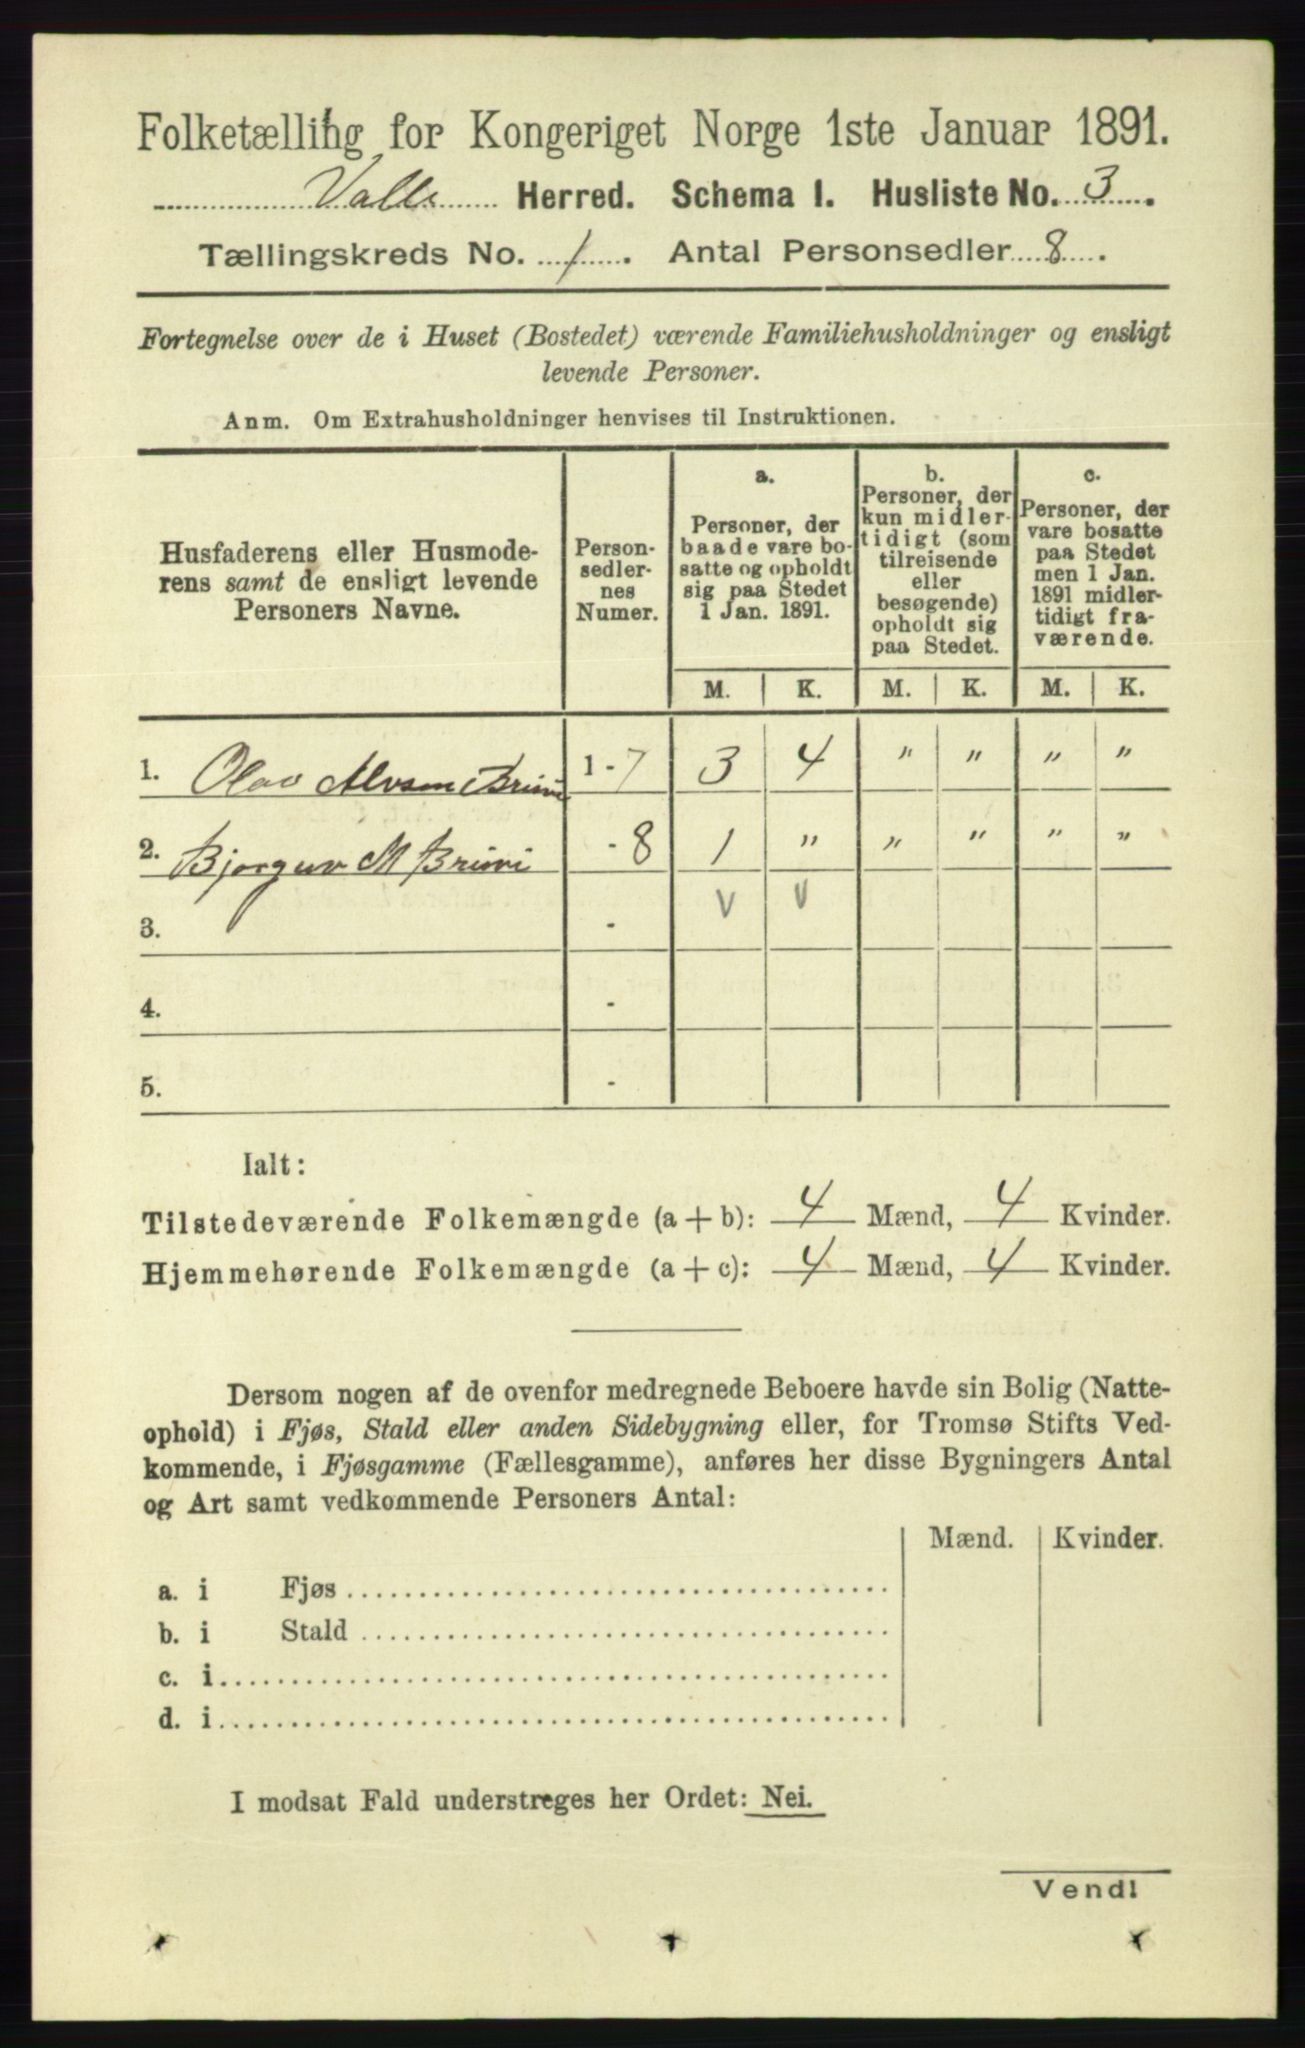 Folketælling for Kongeriget Norge 1ste Januar 1891.
Valle Herred. Schema I. Husliste No. 3.
Tællingskreds No. 1. Antal Personsedler 8.
Fortegnelse over de i Huset (Bostedet) værende Familiehusholdninger og ensligt
levende Personer.
Anm. Om Extrahusholdninger henvises til Instruktionen.
Husfaderens eller Husmode-
rens samt de ensligt levende
Personers Navne.
Person-
sedler-
nes
Numer.
a.
Personer, der
baade vare bo-
satte og opholdt
sig paa Stedet
1 Jan. 1891.
b.
Personer, der
kun midler-
tidigt (som
tilreisende
eller
besøgende)
opholdt sig
paa Stedet.
c.
Personer, der
vare bosatte
paa Stedet
men 1 Jan.
1891 midler-
tidigt fra-
værende.
M. K. M. K. M. K.
1. Olav Alvsen 1-7 3 4 " " " "
2. Bjorguv M Brivi - 8 1 " " " " "
3. - V V
4. -
5. -
Ialt:
Tilstedeværende Folkemængde (a + b): 4 Mænd, 4 Kvinder.
Hjemmehørende Folkemængde (a + c): 4 Mænd, 4 Kvinder.
Dersom nogen af de ovenfor medregnede Beboere havde sin Bolig (Natte-
ophold) i Fjøs, Stald eller anden Sidebygning eller, for Tromsø Stifts Ved-
kommende, i Fjøsgamme (Fællesgamme), anføres her disse Bygningers Antal
og Art samt vedkommende Personers Antal:
Mænd. Kvinder.
a. i Fjøs
b. i Stald
c. i
d. i
I modsat Fald understreges her Ordet: Nei.
Vend!